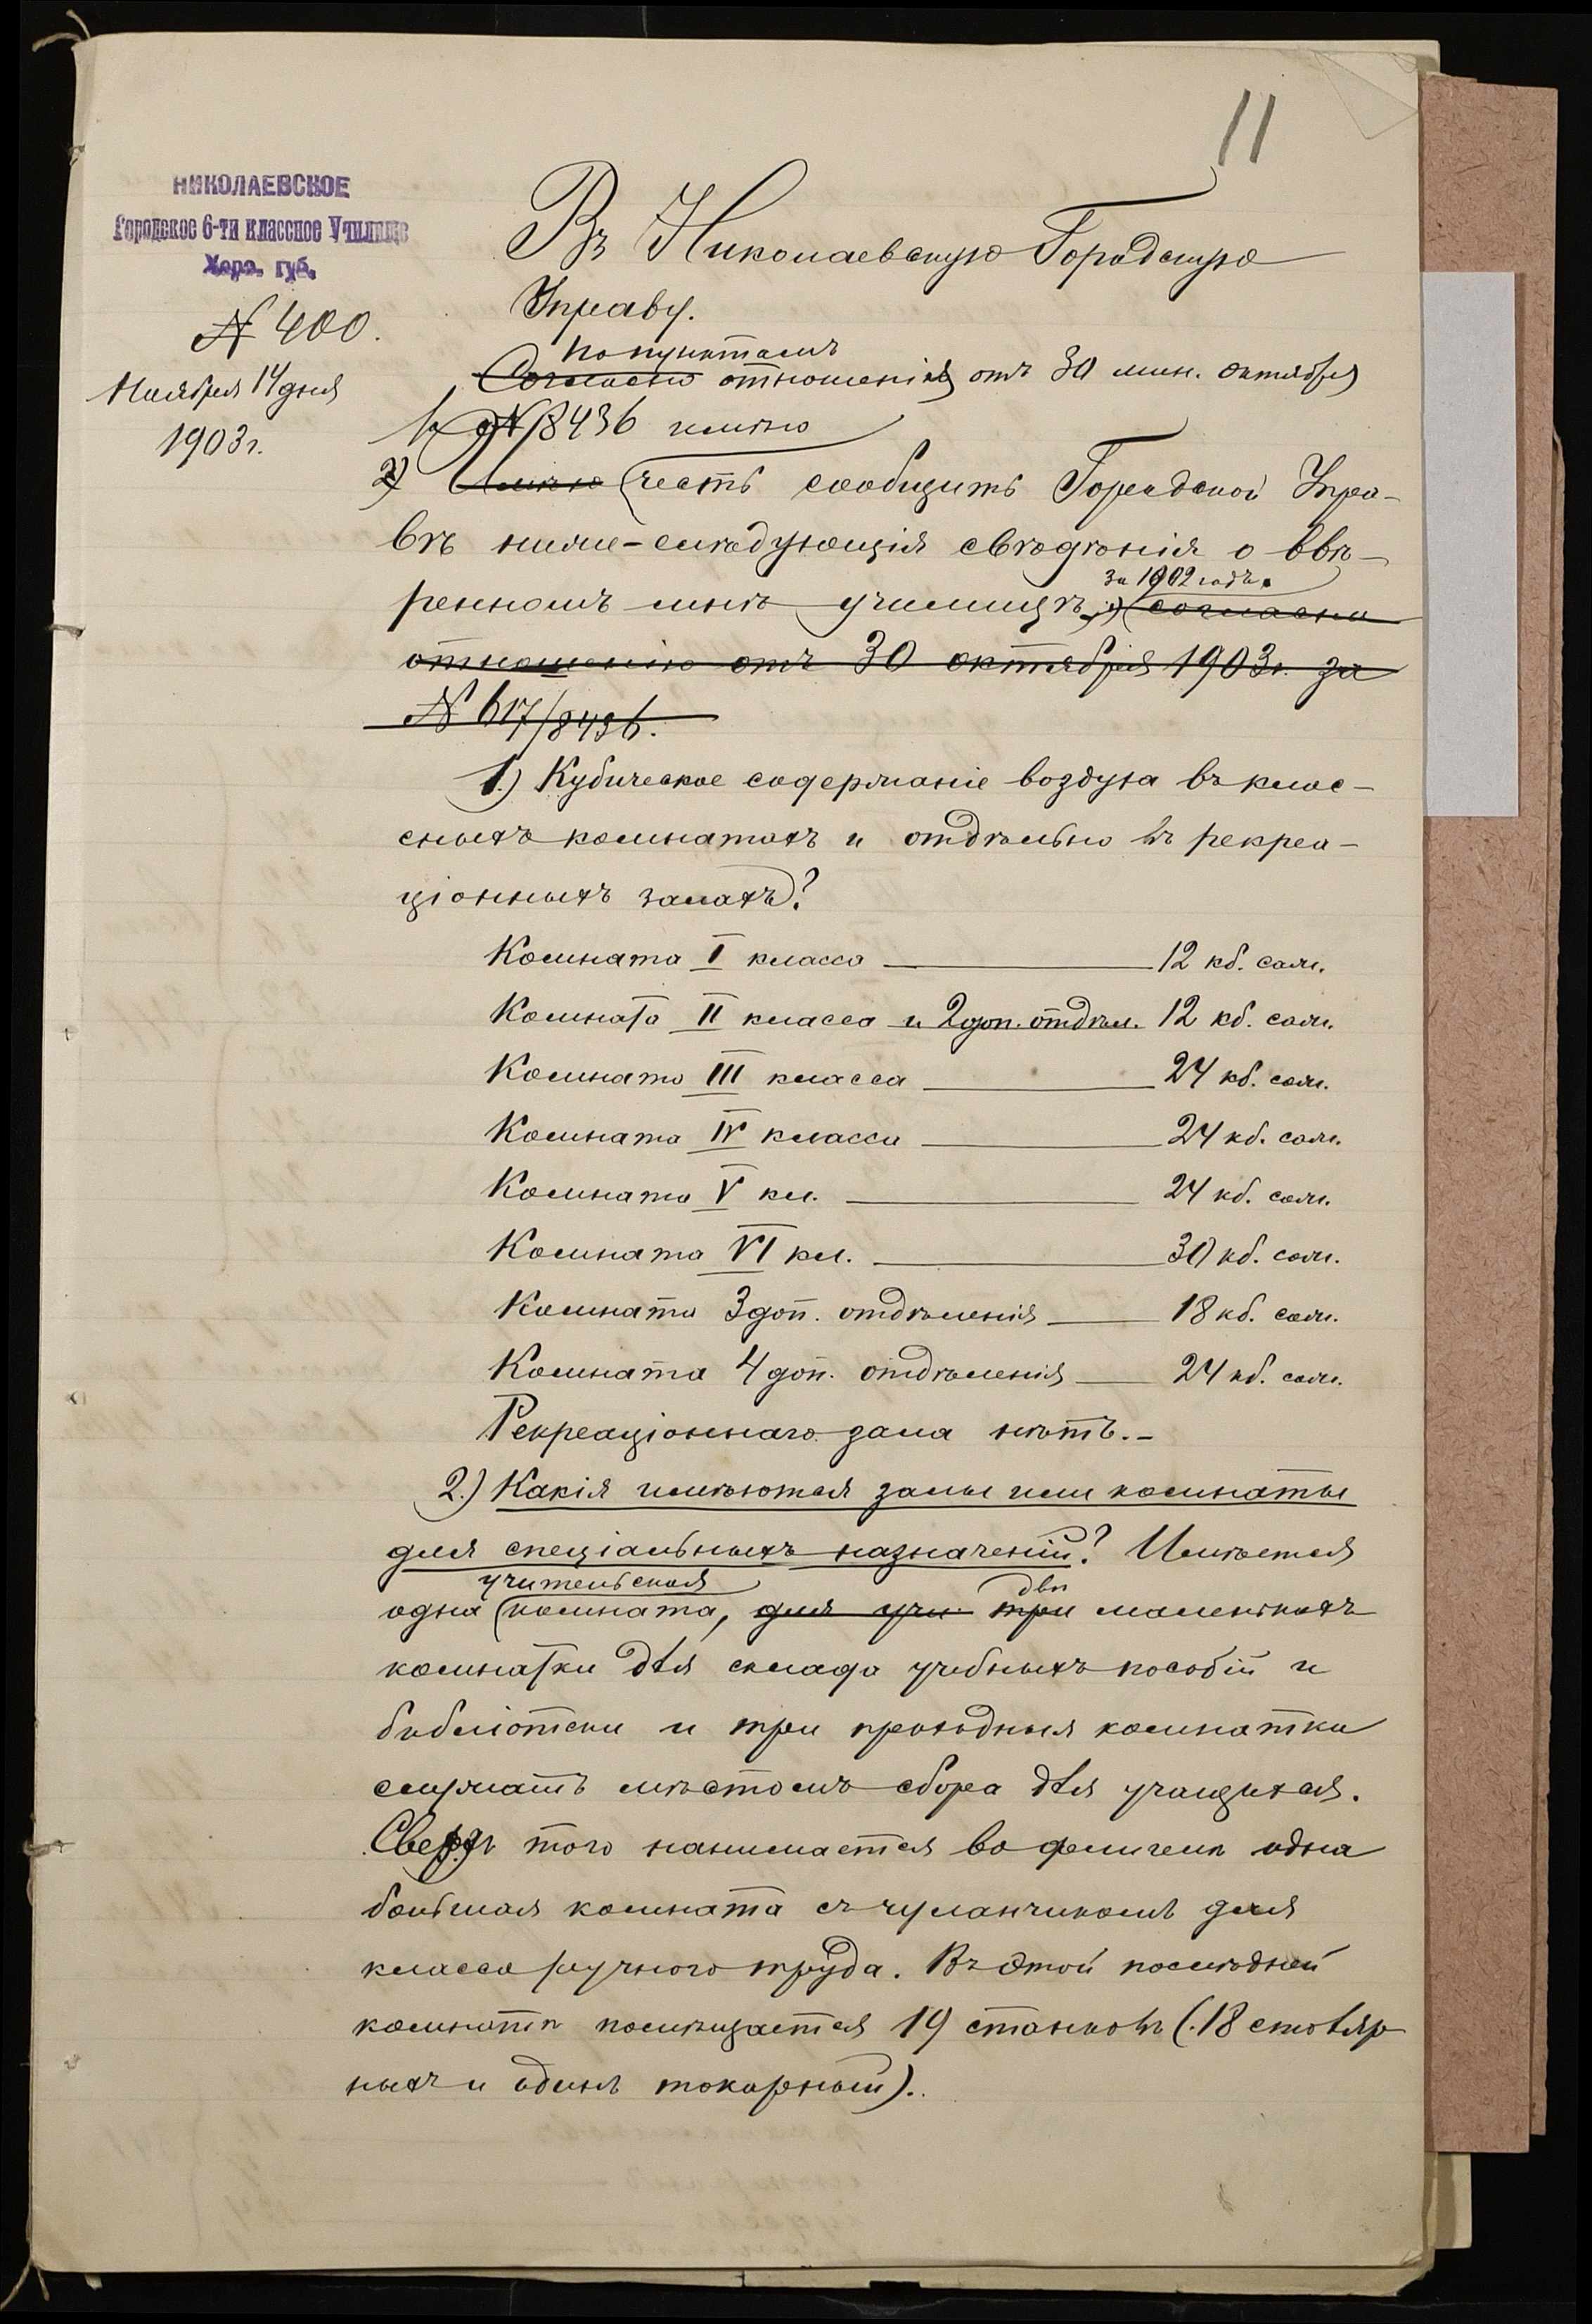 11
НИКОЛАЕВСКОЕ
Городское 6-ти классное Училище
Херс. губ.
№ 400.
Ноября 14 дня
1903 г.
Въ Николаевскую Городскую
Управу.
по пунктамъ
Согласно отношенія отъ 30 мин. октября
№ 8436 имѣю
2) Имѣю честь сообщить Городской Упра-
вѣ ниже-слѣдующія свѣдѣнія о ввѣ-
за 1902 годъ.
ренномъ мнѣ училищѣ, согласно
отношенію отъ 30 октября 1903 г. за
№ 617/8436.
1.) Кубическое содержаніе воздуха въ клас-
сныхъ комнатахъ и отдѣльно въ рекреа-
ціонныхъ залахъ?
Комната I класса 12 кб. саж.
Комната II класса и 2 доп. отдѣл. 12 кб. саж.
Комната III класса 24 кб. саж.
Комната IV класса 24 кб. саж.
Комната V кл. 24 кб. саж.
Комната VI кл. 30 кб. саж.
Комната 3 доп. отдѣленія 18 кб. саж.
Комната 4 доп. отдѣленія 24 кб. саж.
Рекреаціоннаго зала нѣтъ.-
2.) Какія имѣются залы или комнаты
для спеціальныхъ назначеній? Имѣется
учительская две
одна комната, для учи три маленькихъ
комнатки для склада учебныхъ пособій и
библіотеки и три проходныя комнатки
служатъ мѣстомъ сбора для учащихся.
Сверхъ того нанимается во флигелѣ одна
большая комната съ чуланчикомъ для
класса ручного труда. Въ этой послѣдней
комнатѣ помѣщается 19 станковъ (18 столяр
ныхъ и одинъ токарный).